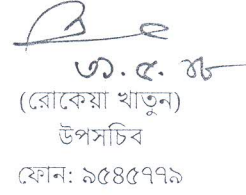 ৩১.৫.১৮
(রোকেয়া খাতুন)
উপসচিব
ফোন: ৯৫৪৫৭৭৯